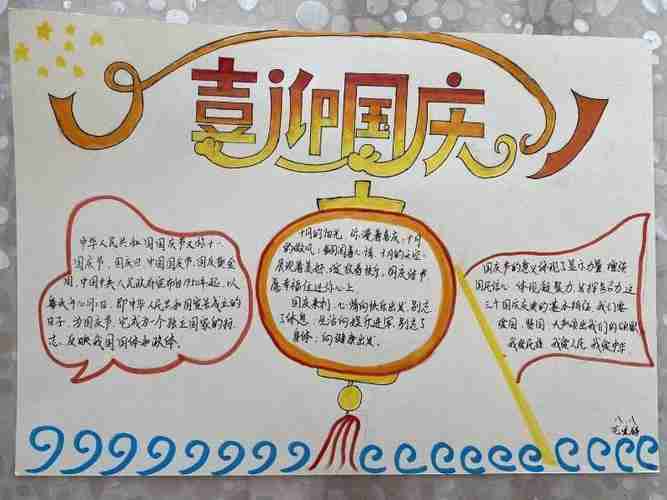 喜迎国庆
中华人民共和国国庆节又称十一
国庆节、国庆日、中国国庆节、国庆黄金
周。中国中央人民政府宣布自1950年起,以
每年十月一日,即中华人民共和国宣告成立的
日子,为国庆节,它成为一个独立国家的标
志,反映我国国体和政体。
十月的阳光,弥漫着喜庆,十月
的微风,
展现着美好,绽放着快乐,国庆佳节
愿幸福住进你心上。
国庆来到,心情向快乐出发,别忘
了休息,生活向娱乐进军,别忘了
身体,向健康出发。
国庆节的意义体现了显示力量,增强
国民信心,体现凝聚力,发挥号召力这
三个国庆庆典的基本特征,我们要
爱国,赞国,大声喊出我们的
我爱民族,我爱人民,我爱中华